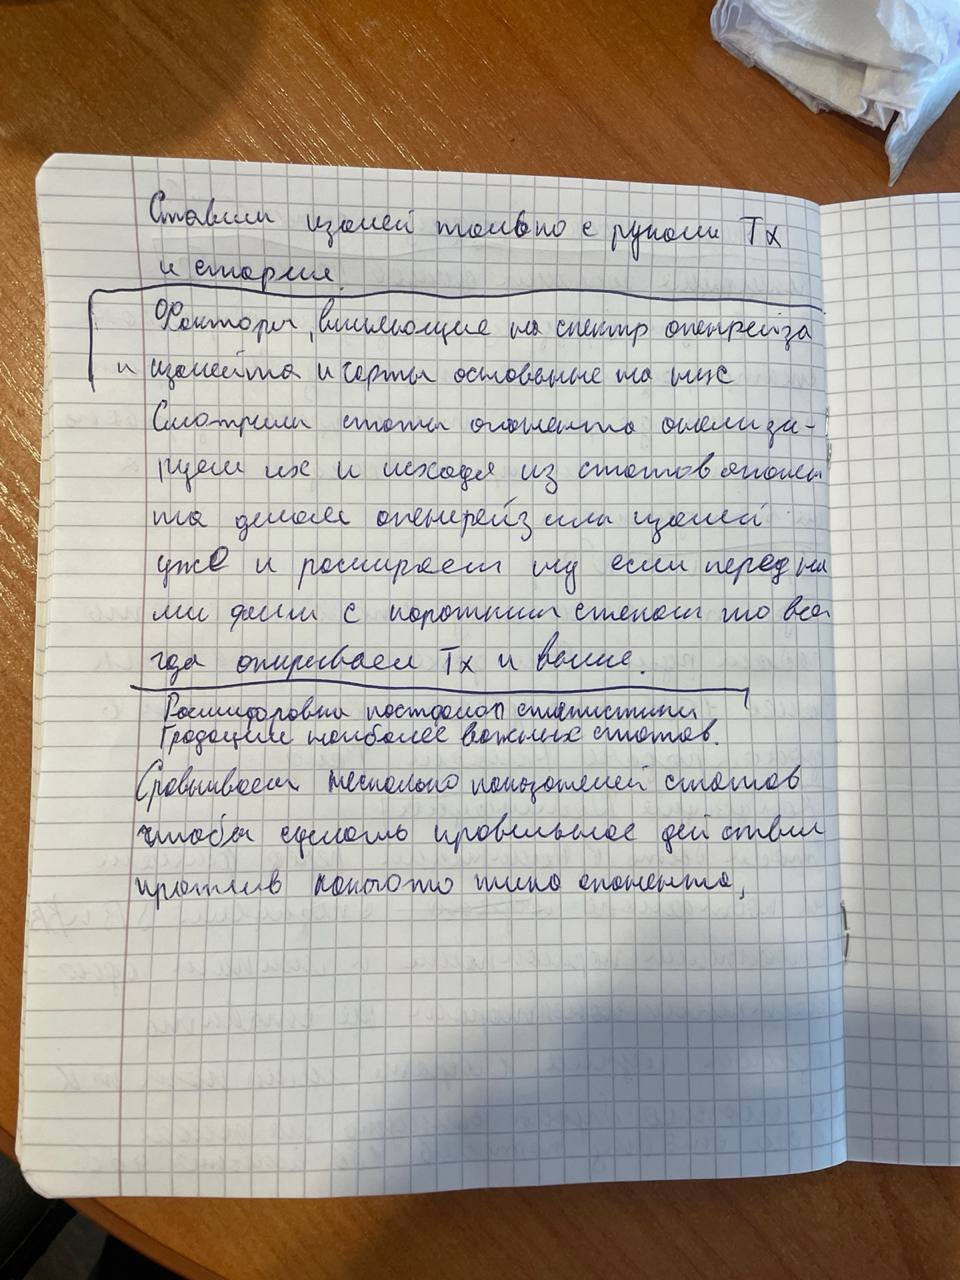 Ставим изолей только с руками Тх
и старше.
Факторы, влияющие на спектр опенрейза
и изолейта и чарты основаные на них
Смотрим статы опонента анализи-
руем их и исходя из статов опонен
та делаем опенрейз или изолей
уже и расширяем ну если перед на
ми фиш с коротким стеком то всег
да опирываем Тх и выше.
Расшифровка постфлоп статистики
Градации наиболее важных статов.
Сравниваем несколько показателей статов
чтобы сделать правильное действия
против какого то типа опонента,